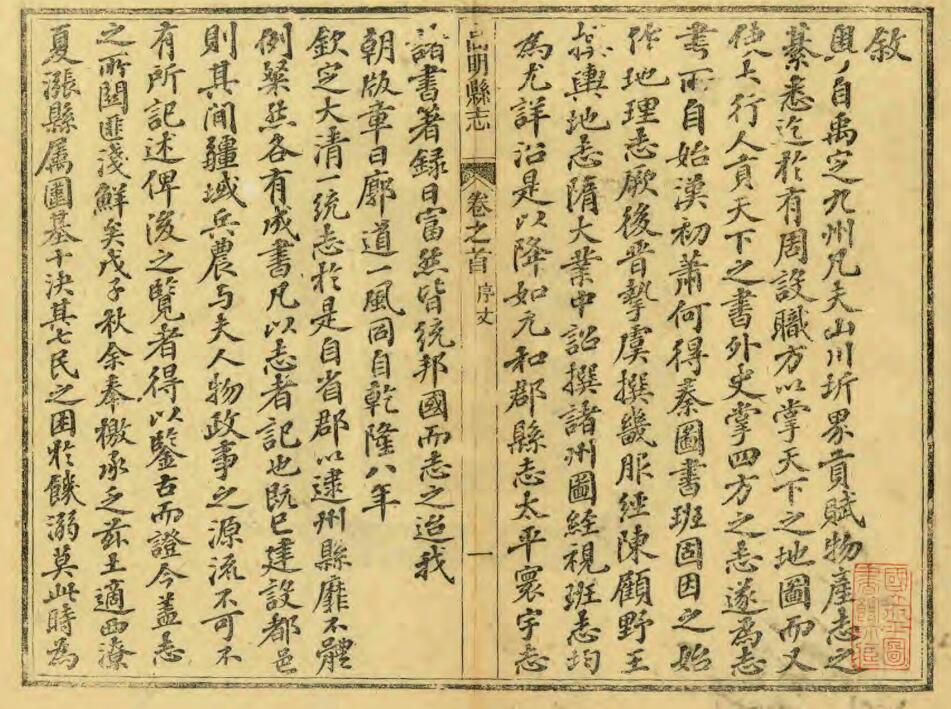 敘
自禹定九州凡夫山川圻界貢賦物產志之
綦悉迄於有周設職方以掌天下之地圖而又
使大行人貢天下之書外史掌四方之志遂為志
書所自始漢初蕭何得秦圖書班固因之始
作地理志厥後晉摯虞撰畿服經陳顧野王
輿地志隋大業中詔撰諸州圖經視班志均
為尤詳沿是以降如元和郡縣志太平寰宇志
明縣志 卷之首 序文 一
諸書著録日富然皆統邦國而志之迨我
朝版章日廓道一風同自乾隆八年
欽定大清一統志於是自省郡以逮州縣靡不體
例粲然各有成書凡以志者記也既已建設都邑
則其間疆域兵農与夫人物政事之源流不可不
有所記述俾後之覽者得以鑒古而證今蓋志
之所關匪淺鮮矣戊子秋余奉檄承乏茲土適西潦
夏漲縣属圍基十決其七民之困於饑溺莫此時為
國立北平圖書館所藏